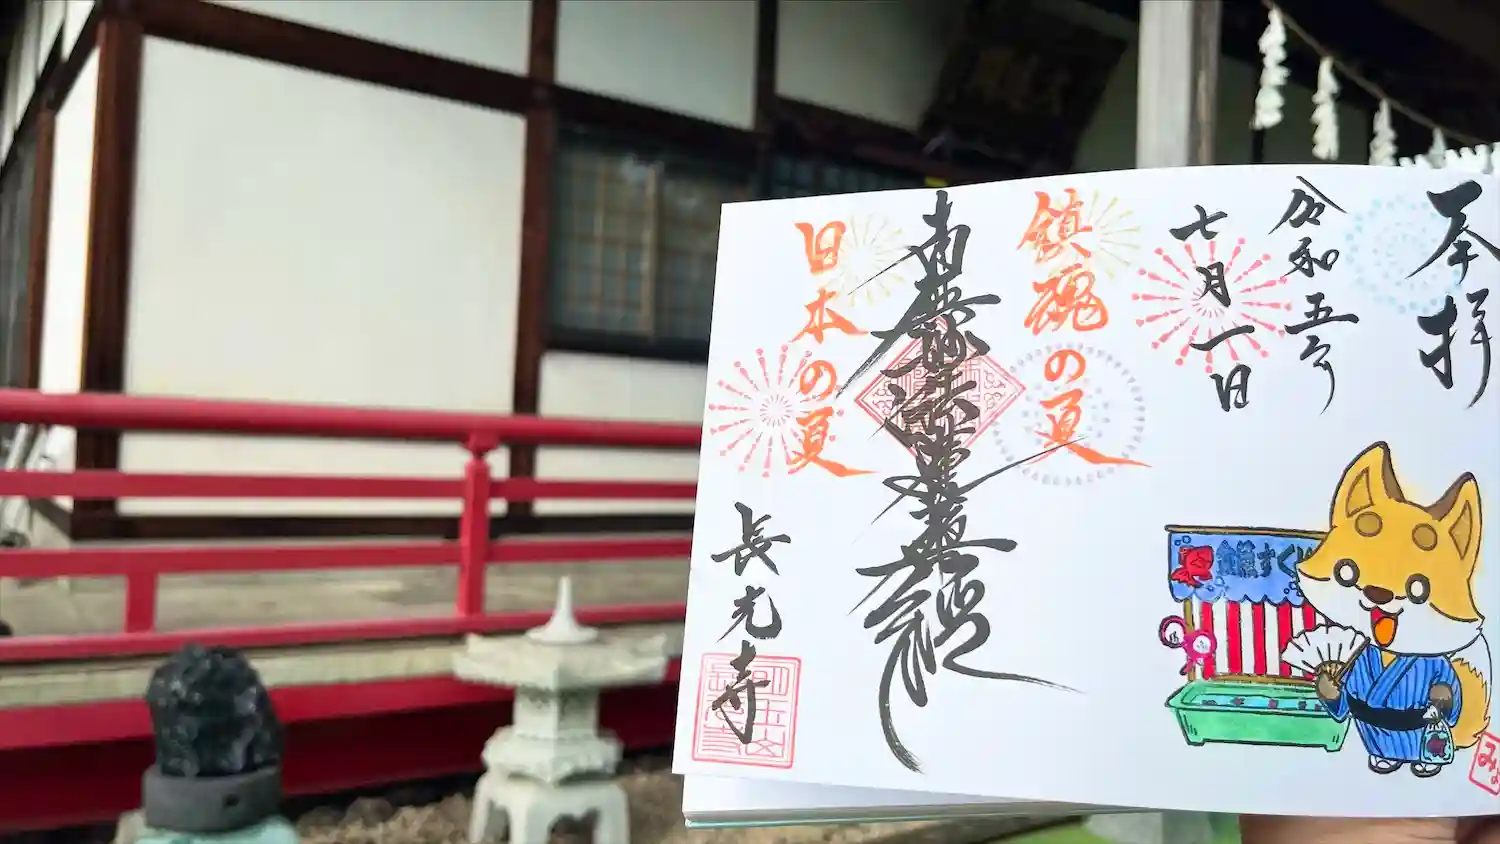 奉拝
令和五年
七月一日
鎮魂の夏
南無妙法蓮華経
日本の夏
長光寺
金魚すくい